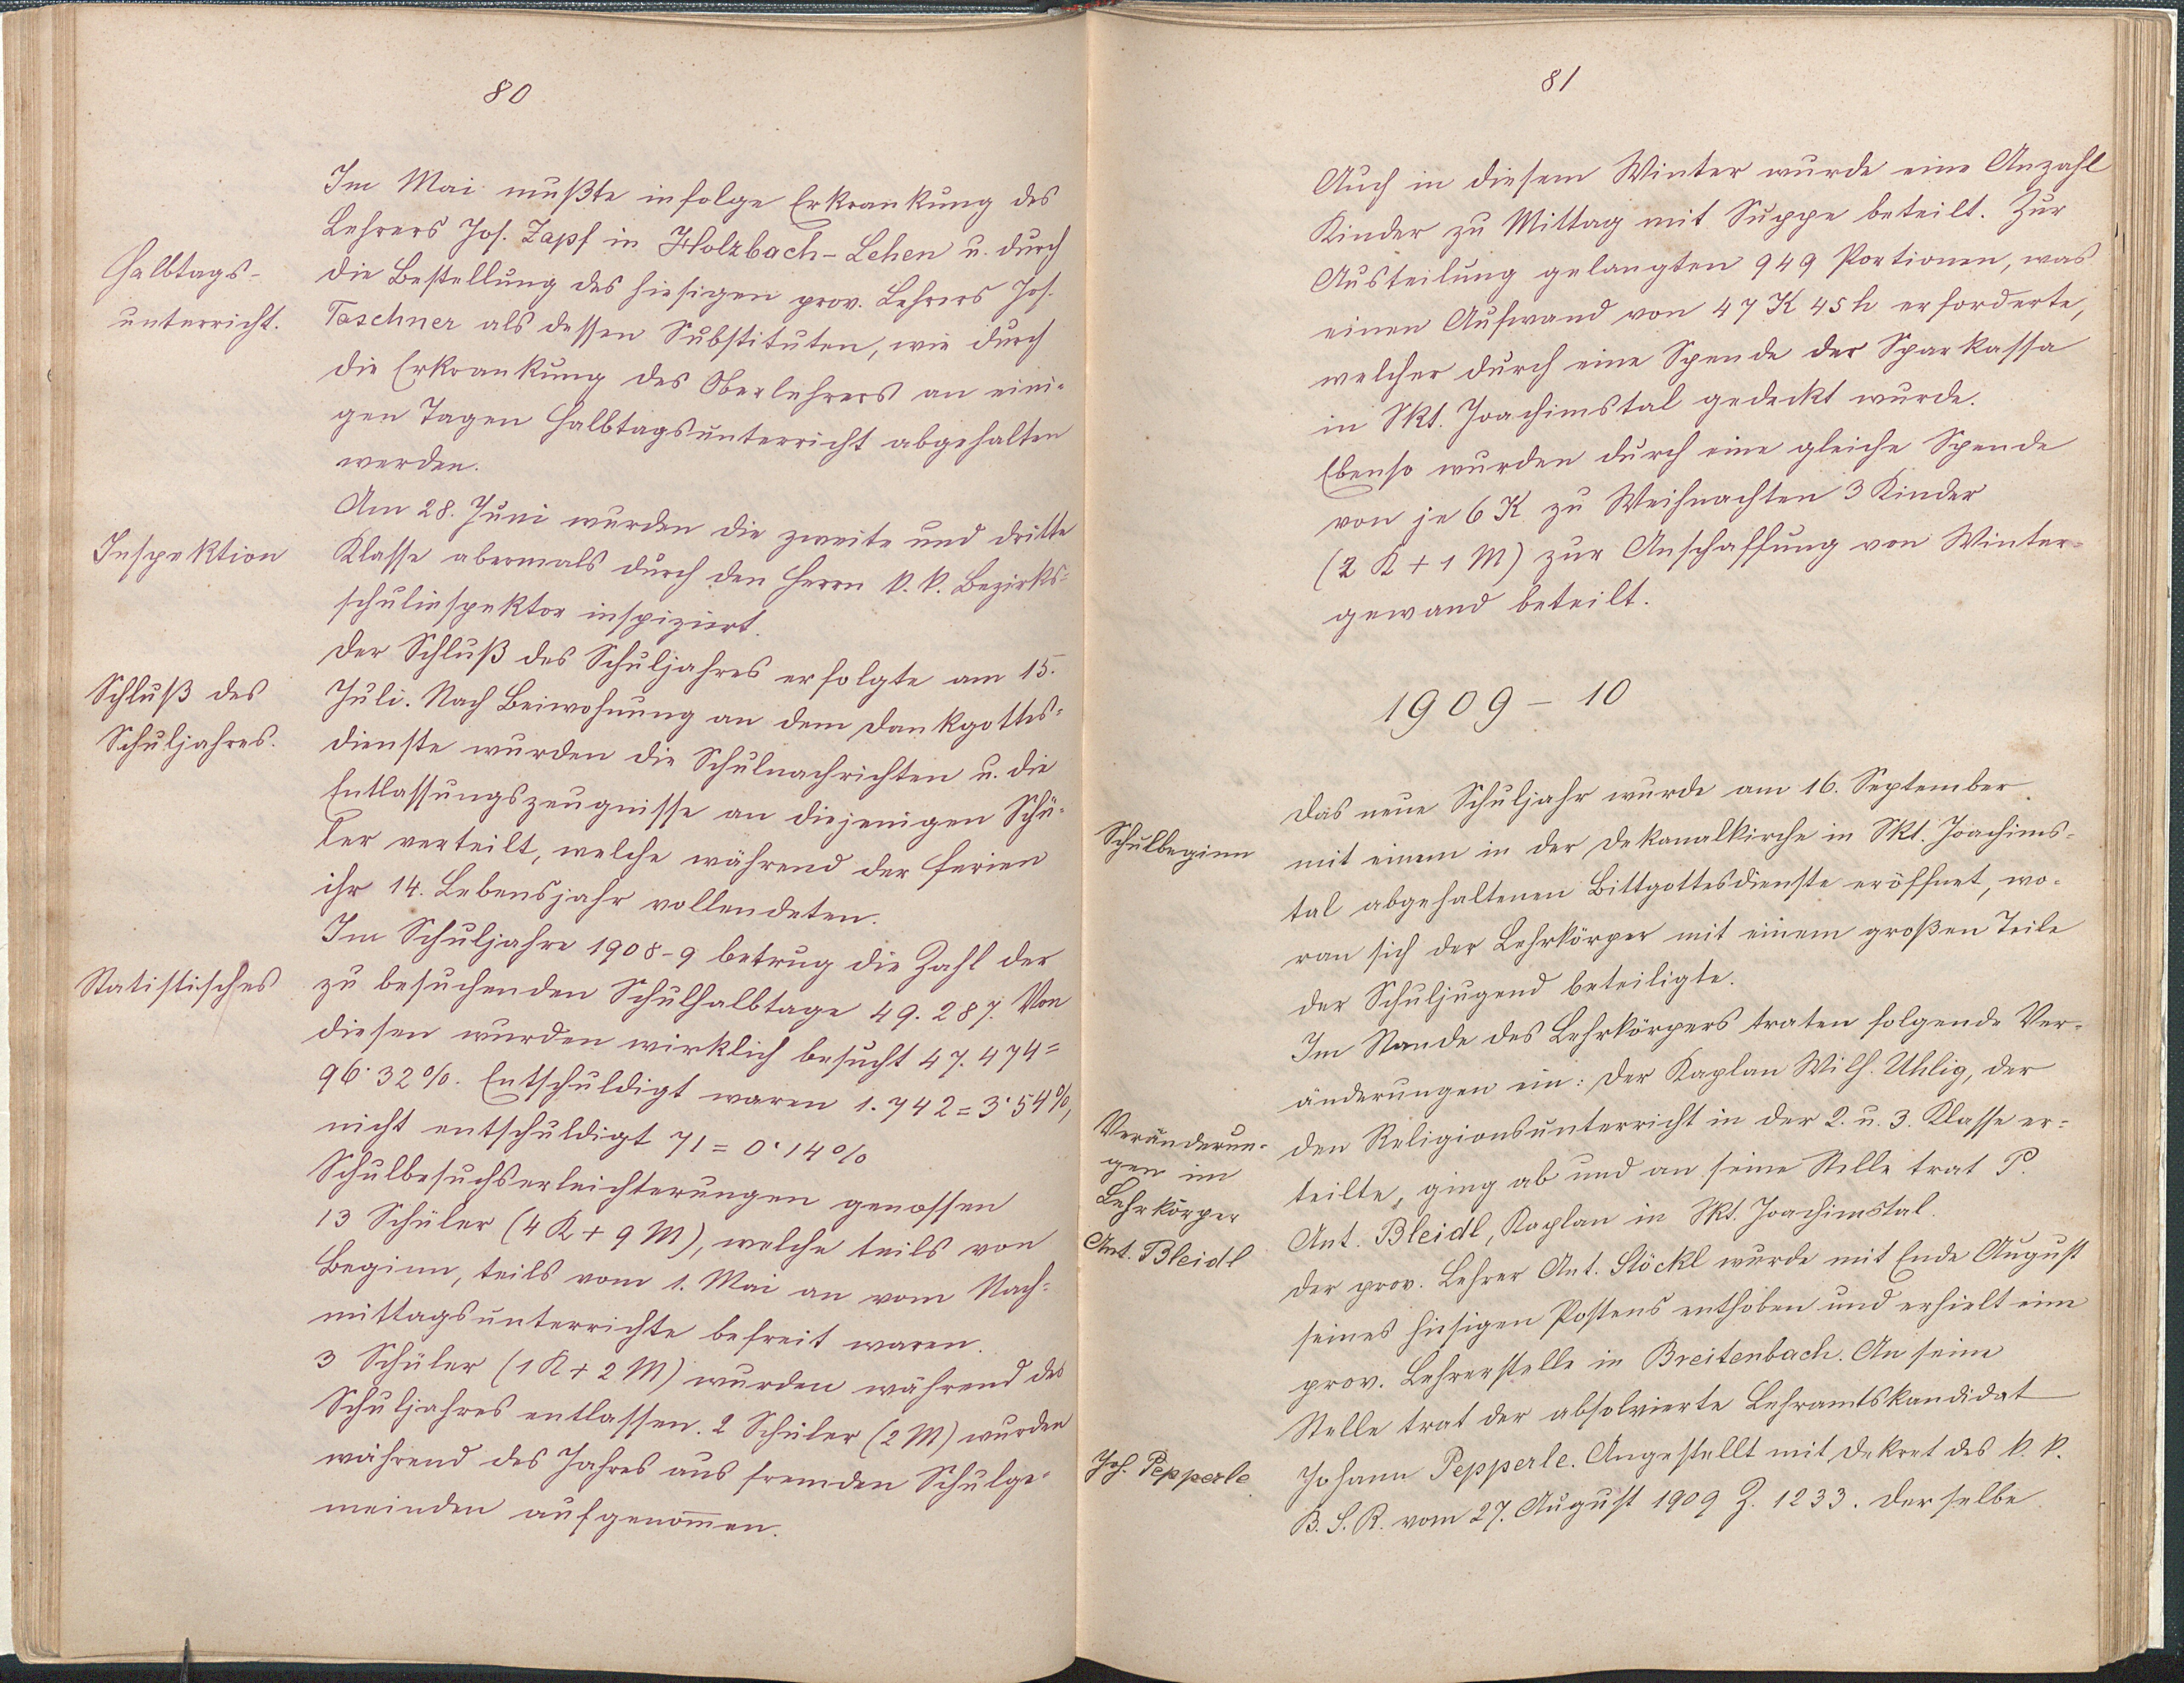 80
Im Mai mußte infolge Erkrankung des
Lehrers Jos. Zapf in Holzbach-Lehen u. durch
Halbtags-
die Bestellung des hiesigen prov. Lehrers Jos.
unterricht.
Taschner als dessen Substituten, wie durch
die Erkrankung des Oberlehrers an eini-
gen Tagen Halbtagsunterricht abgehalten
werden.
Am 28. Juni wurden die zweite und dritte
Inspektion
Klasse abermals durch den Herrn k. k. Bezirks-
schulinspektor inspiziert.
Der Schluß des Schuljahres erfolgte am 15.
Schluß des
Juli. Nach Beiwohnung an dem Dankgottes-
Schuljahres.
dienste wurden die Schulnachrichten u. die
Entlassungszeugnisse an diejenigen Schü-
ler verteilt, welche während der Ferien
ihr 14. Lebensjahr vollendeten.
Im Schuljahre 1908-9 betrug die Zahl der
Statistisches
zu besuchenden Schulhalbtage 49.287. Von
diesen wurden wirklich besucht 47.474=
96·32%. Entschuldigt waren 1.742=3·54%,
nicht entschuldigt 71=0·14%
Schulbesuchserleichterungen genossen
13 Schüler (4 K + 9 M), welche teils von
Beginn, teils vom 1. Mai an vom Nach-
mittagsunterrichte befreit waren.
3 Schüler (1 K + 2 M) wurden während des
Schuljahres entlassen. 2 Schüler (2 M) wurden
während des Jahres aus fremden Schulge-
meinden aufgenom̅en.
81
Auch in diesem Winter wurde eine Anzahl
Kinder zu Mittag mit Suppe beteilt. Zur
Austeilung gelangten 949 Portionen, was
einen Aufwand von 47 K 45 h erforderte,
welcher durch eine Spende der Sparkassa
in Skt. Joachimstal gedeckt wurde.
Ebenso wurden durch eine gleiche Spende
von je 6 K zu Weihnachten 3 Kinder
(2 K + 1 M) zur Anschaffung von Winter-
gewand beteilt.
1909 - 10
Das neue Schuljahr wurde am 16. September
Schulbeginn
mit einem in der Dekanalkirche in Skt. Joachims-
tal abgehaltenen Bittgottesdienste eröffnet, wo-
ran sich der Lehrkörper mit einem großen Teile
der Schuljugend beteiligte.
Im Stande des Lehrkörpers traten folgende Ver-
änderungen ein: Der Kaplan Wilh. Uhlig, der
Veränderun-
den Religionsunterricht in der 2. u. 3. Klasse er-
gen im
teilte, ging ab und an seine Stelle trat P.
Lehrkörper
Ant. Bleidl, Kaplan in Skt. Joachimstal.
Ant. Bleidl
Der prov. Lehrer Ant. Stöckl wurde mit Ende August
seines hiesigen Postens enthoben und erhielt eine
prov. Lehrerstelle in Breitenbach. An seine
Stelle trat der absolvierte Lehramtskandidat
Joh. Pepperle.
Johann Pepperle. Angestellt mit Dekret des k. k.
B. S. R. vom 27. August 1909 Z. 1233. Derselbe